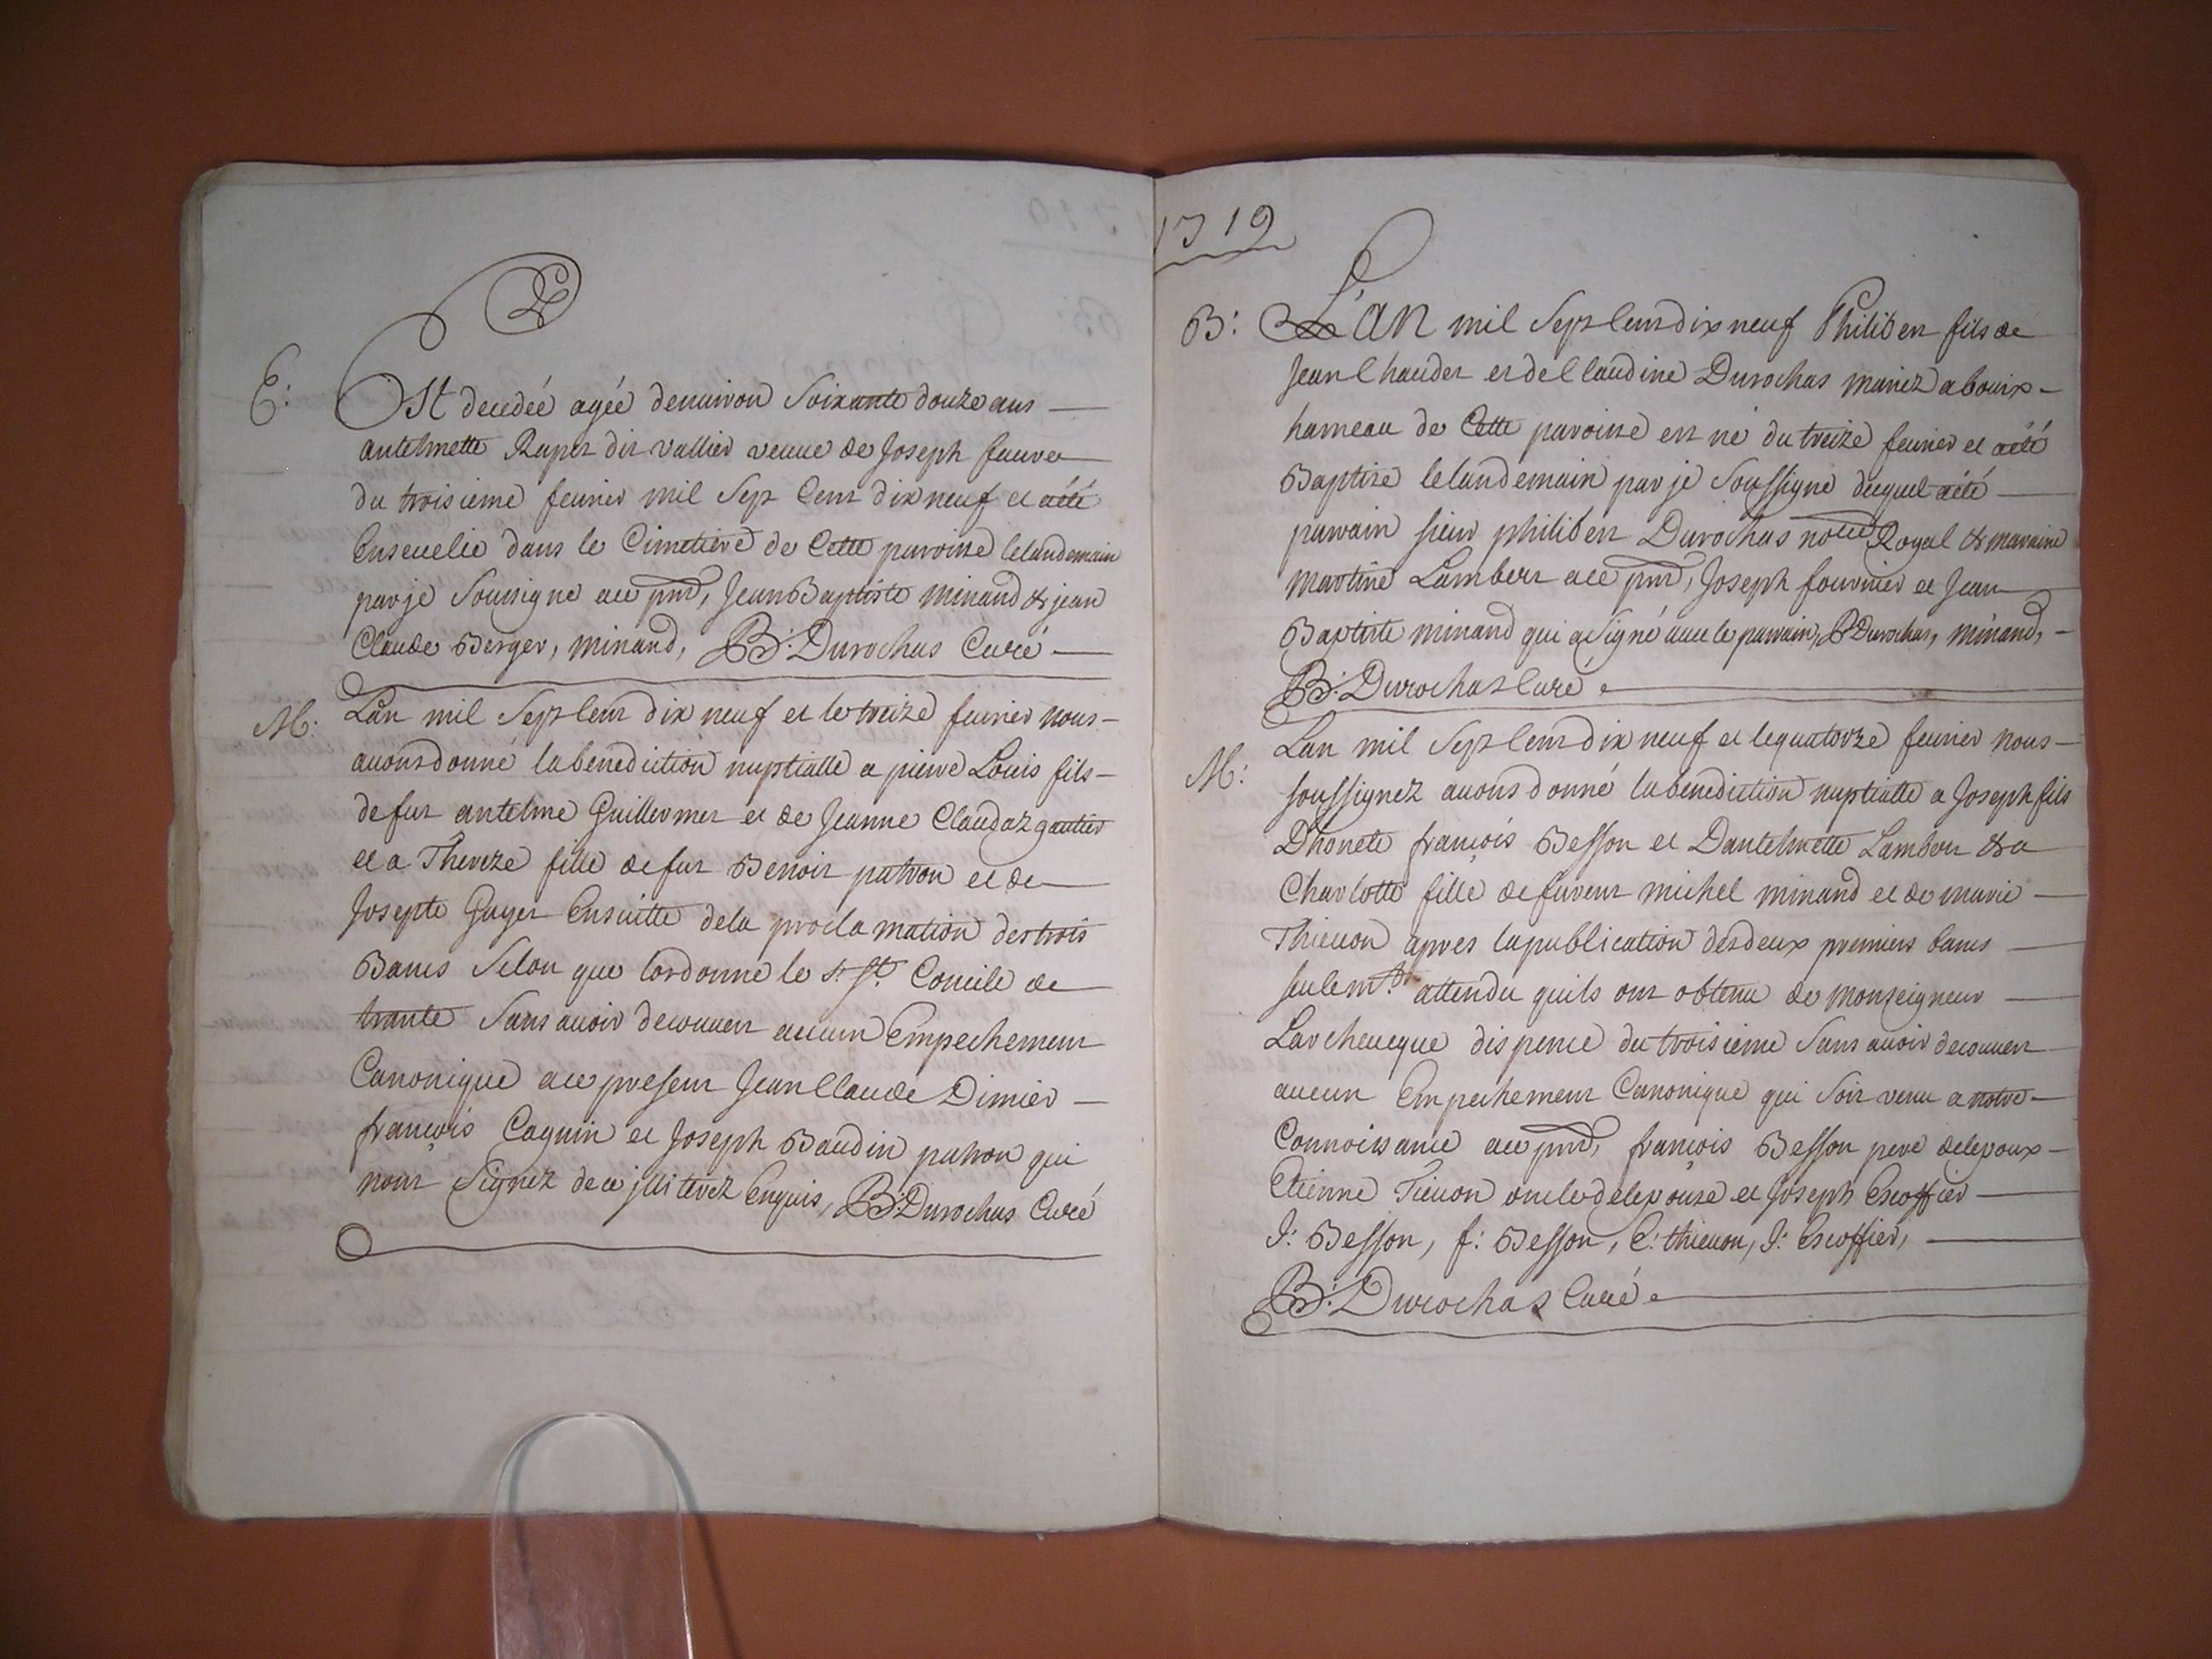 E: Est decedéé agéé denuiron Soixante douze ans
antelmette Rupet dit vallier veuue de Joseph fauure
du troisieme feurier mil Sept Cent dix neuf et aété
Enseuelie dans le Cimetiere de Cette paroisse lelandemain
par je Soussigné ace pnt, Jean Baptiste minand & jean
Claude Berger, minand, B: Durochas Curé
M: Lan mil Sept Cent dix neuf et le treize feurier nous
auons donné la benediction nuptialle a pierre Louis fils
de fut antelme Guillermet et de Jeanne Claudaz gautier
et a Thereze fille de fut Benoit patron et de
Josepte Guyet Ensuitte dela proclamation des trois
Bancs Selon que lordonne le St Concile de
trante Sans auoir decouuert aucun Empechement
Canonique ace present Jean Claude Dimier
francois Caguin et Joseph Baudin patron qui
nont Signez de ce jlliterez Enquis, B: Durochas Curé
1719
B: L'an mil Sept Cent dix neuf Philibert fils de
Jean Chaudet et de Claudine Durochas mariez a bouix
hameau de Cette paroisse est né du treize feurier et aété
Baptizé lelandemain par je Soussigné duquel aété
parrain sieur philibert Durochas Royal & maraine
martine Lambert ace pnt, Joseph fournier et Jean
Baptiste minand qui a Signé auec le parrain, P Durochas, minand,
B: Durochas Curé
M: Lan mil Sept Cent dix neuf et le quatorze feurier nous
soussignez auons donné la benediction nuptialle a Joseph fils
Dhonete francois Besson et Dantelmette Lambert & a
Charlotte fille de michel minand et de marie
Thieuon apres la publication des deux premiers bancs
seulemt attendu quils ont obtenu de monseigneur
Larcheueque dispence du troisieme Sans auoir decouuert
aucun Empechement Canonique qui Soit venu a notre
Connoissance ace pnt, francois Besson pere delepoux
Etienne Tieuon oncle delepouse et Joseph Escoffier
J: Besson, f: Besson, E: thieuon, J: Escoffier,
B: Durochas Curé